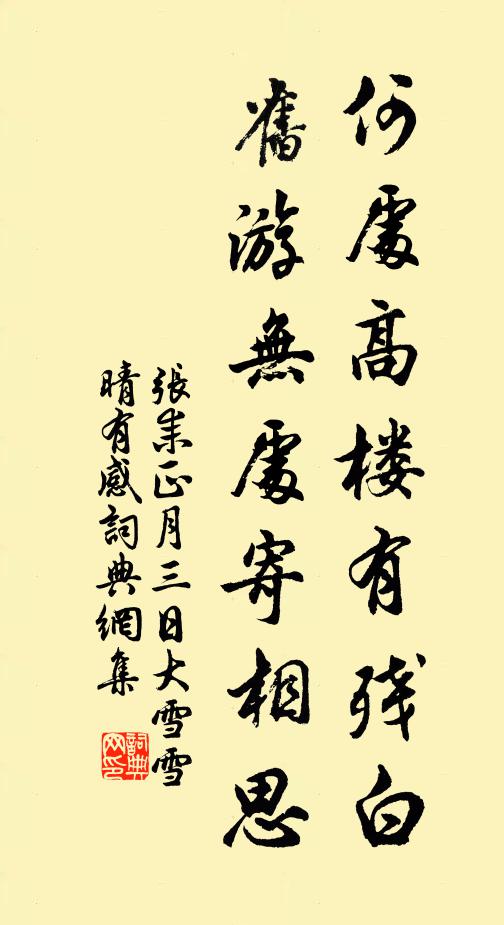 何處高楼有残白
舊游無處寄相思
張耒正月三日大雪雪
晴有感詞典網集
詞典
网印